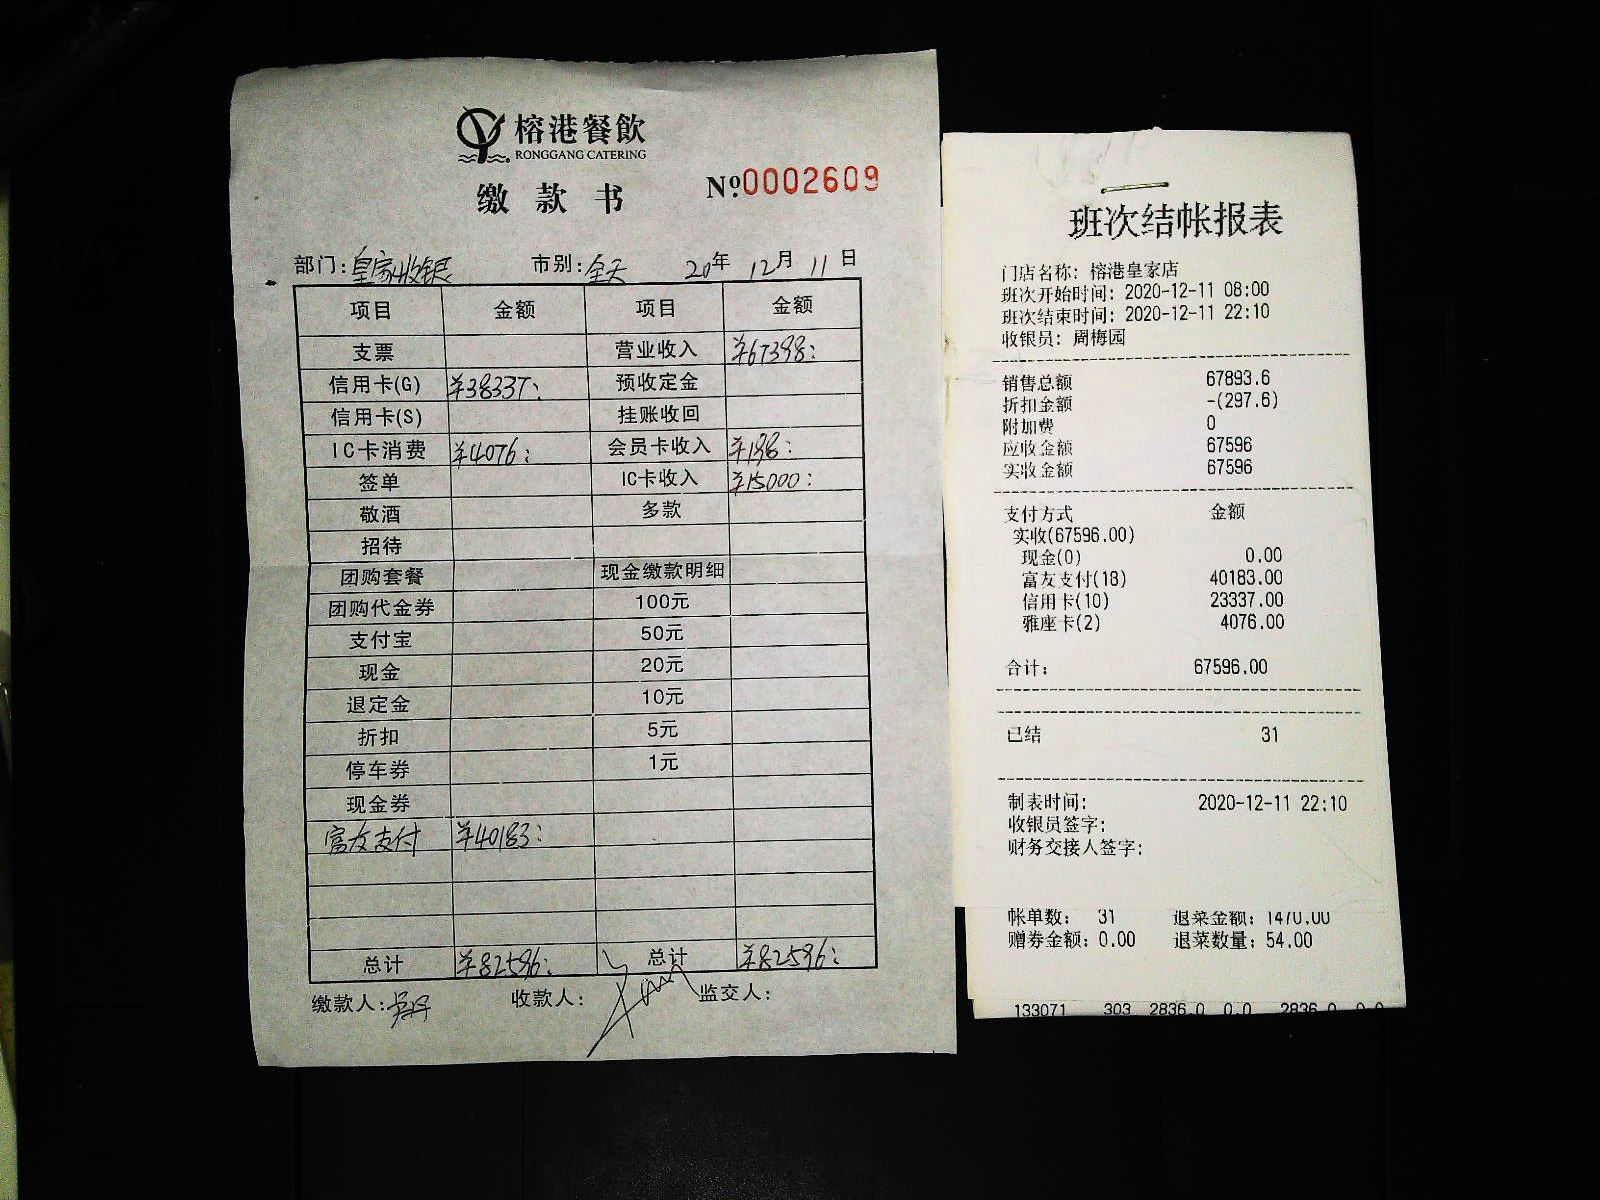 榕港餐飲
RONGGANG CATERING
缴款书
№0002609
部门:皇家收银 市别:全天 20年12月11日
项目 金额 项目 金额
支票 营业收入 ¥67398:
信用卡(G) ¥38337: 预收定金
信用卡(S) 挂账收回
IC卡消费 ¥4076: 会员卡收入 ¥198:
签单 IC卡收入 ¥15000:
敬酒 多款
招待
团购套餐 现金缴款明细
团购代金券 100元
支付宝 50元
现金 20元
退定金 10元
折扣 5元
停车券 1元
现金券
富友支付 ¥40183:
总计 ¥82596: 总计 ¥82596:
缴款人: 收款人: 监交人:
班次结帐报表
门店名称: 榕港皇家店
班次开始时间: 2020-12-11 08:00
班次结束时间: 2020-12-11 22:10
收银员: 周梅园
销售总额 67893.6
折扣金额 -(297.6)
附加费 0
应收金额 67596
实收金额 67596
支付方式 金额
实收(67596.00)
现金(0) 0.00
富友支付(18) 40183.00
信用卡(10) 23337.00
雅座卡(2) 4076.00
合计: 67596.00
已结 31
制表时间: 2020-12-11 22:10
收银员签字:
财务交接人签字:
帐单数: 31 退菜金额: 1470.00
赠券金额: 0.00 退菜数量: 54.00
133071 303 2836.0 0.0 2836.0 0.0